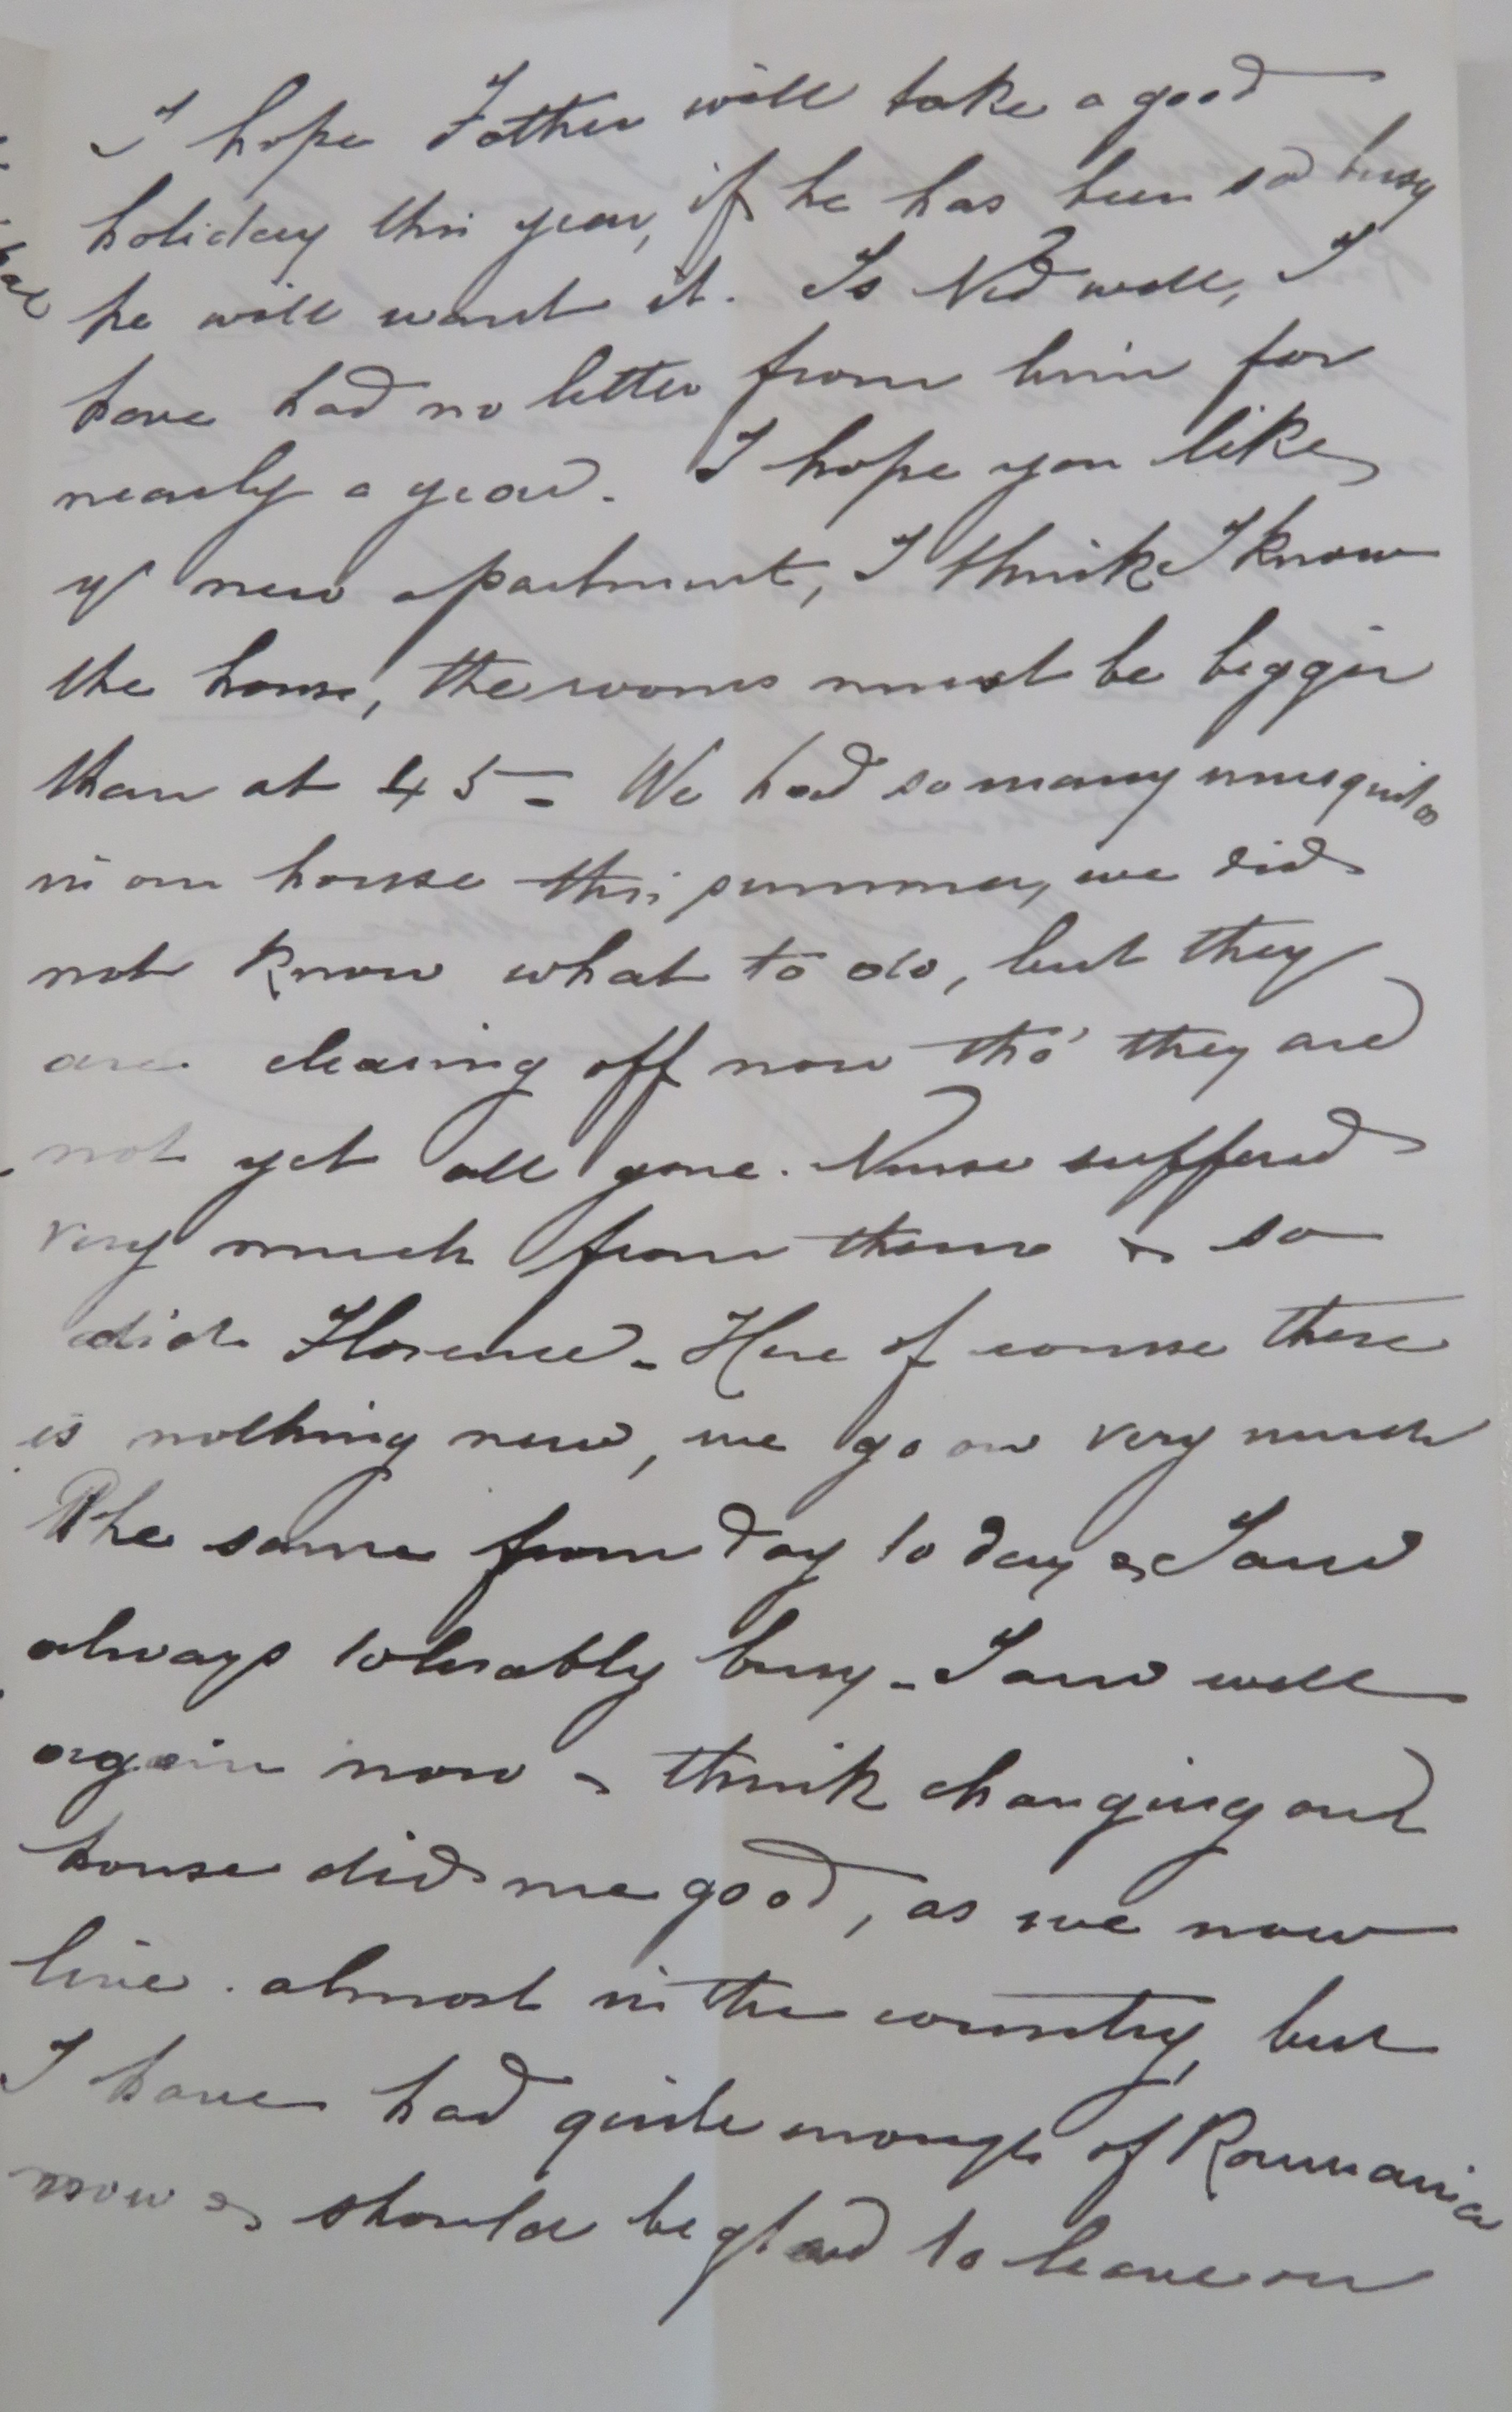 I hope Father will take a good
holiday this year, if he has been so busy
he will want it. Is Ned well, I
have had no letter from him for
nearly a year. I hope you like
yr new apartment, I think I know
the house, the rooms must be bigger
than at 45 - We had so many musquitos
in our house this summer, we did
not know what to do, but they
are clearing off now tho' they are
not yet all gone. Nurse suffered
very much from them & so
did Florence - Here of course there
is nothing new, we go on very much
the same from day to day & I am
always tolerably busy - I am well
again now & think changing our
house did me good, as we now
live almost in the country, but
I have had quite enough of Roumania
now & should be glad to leave on